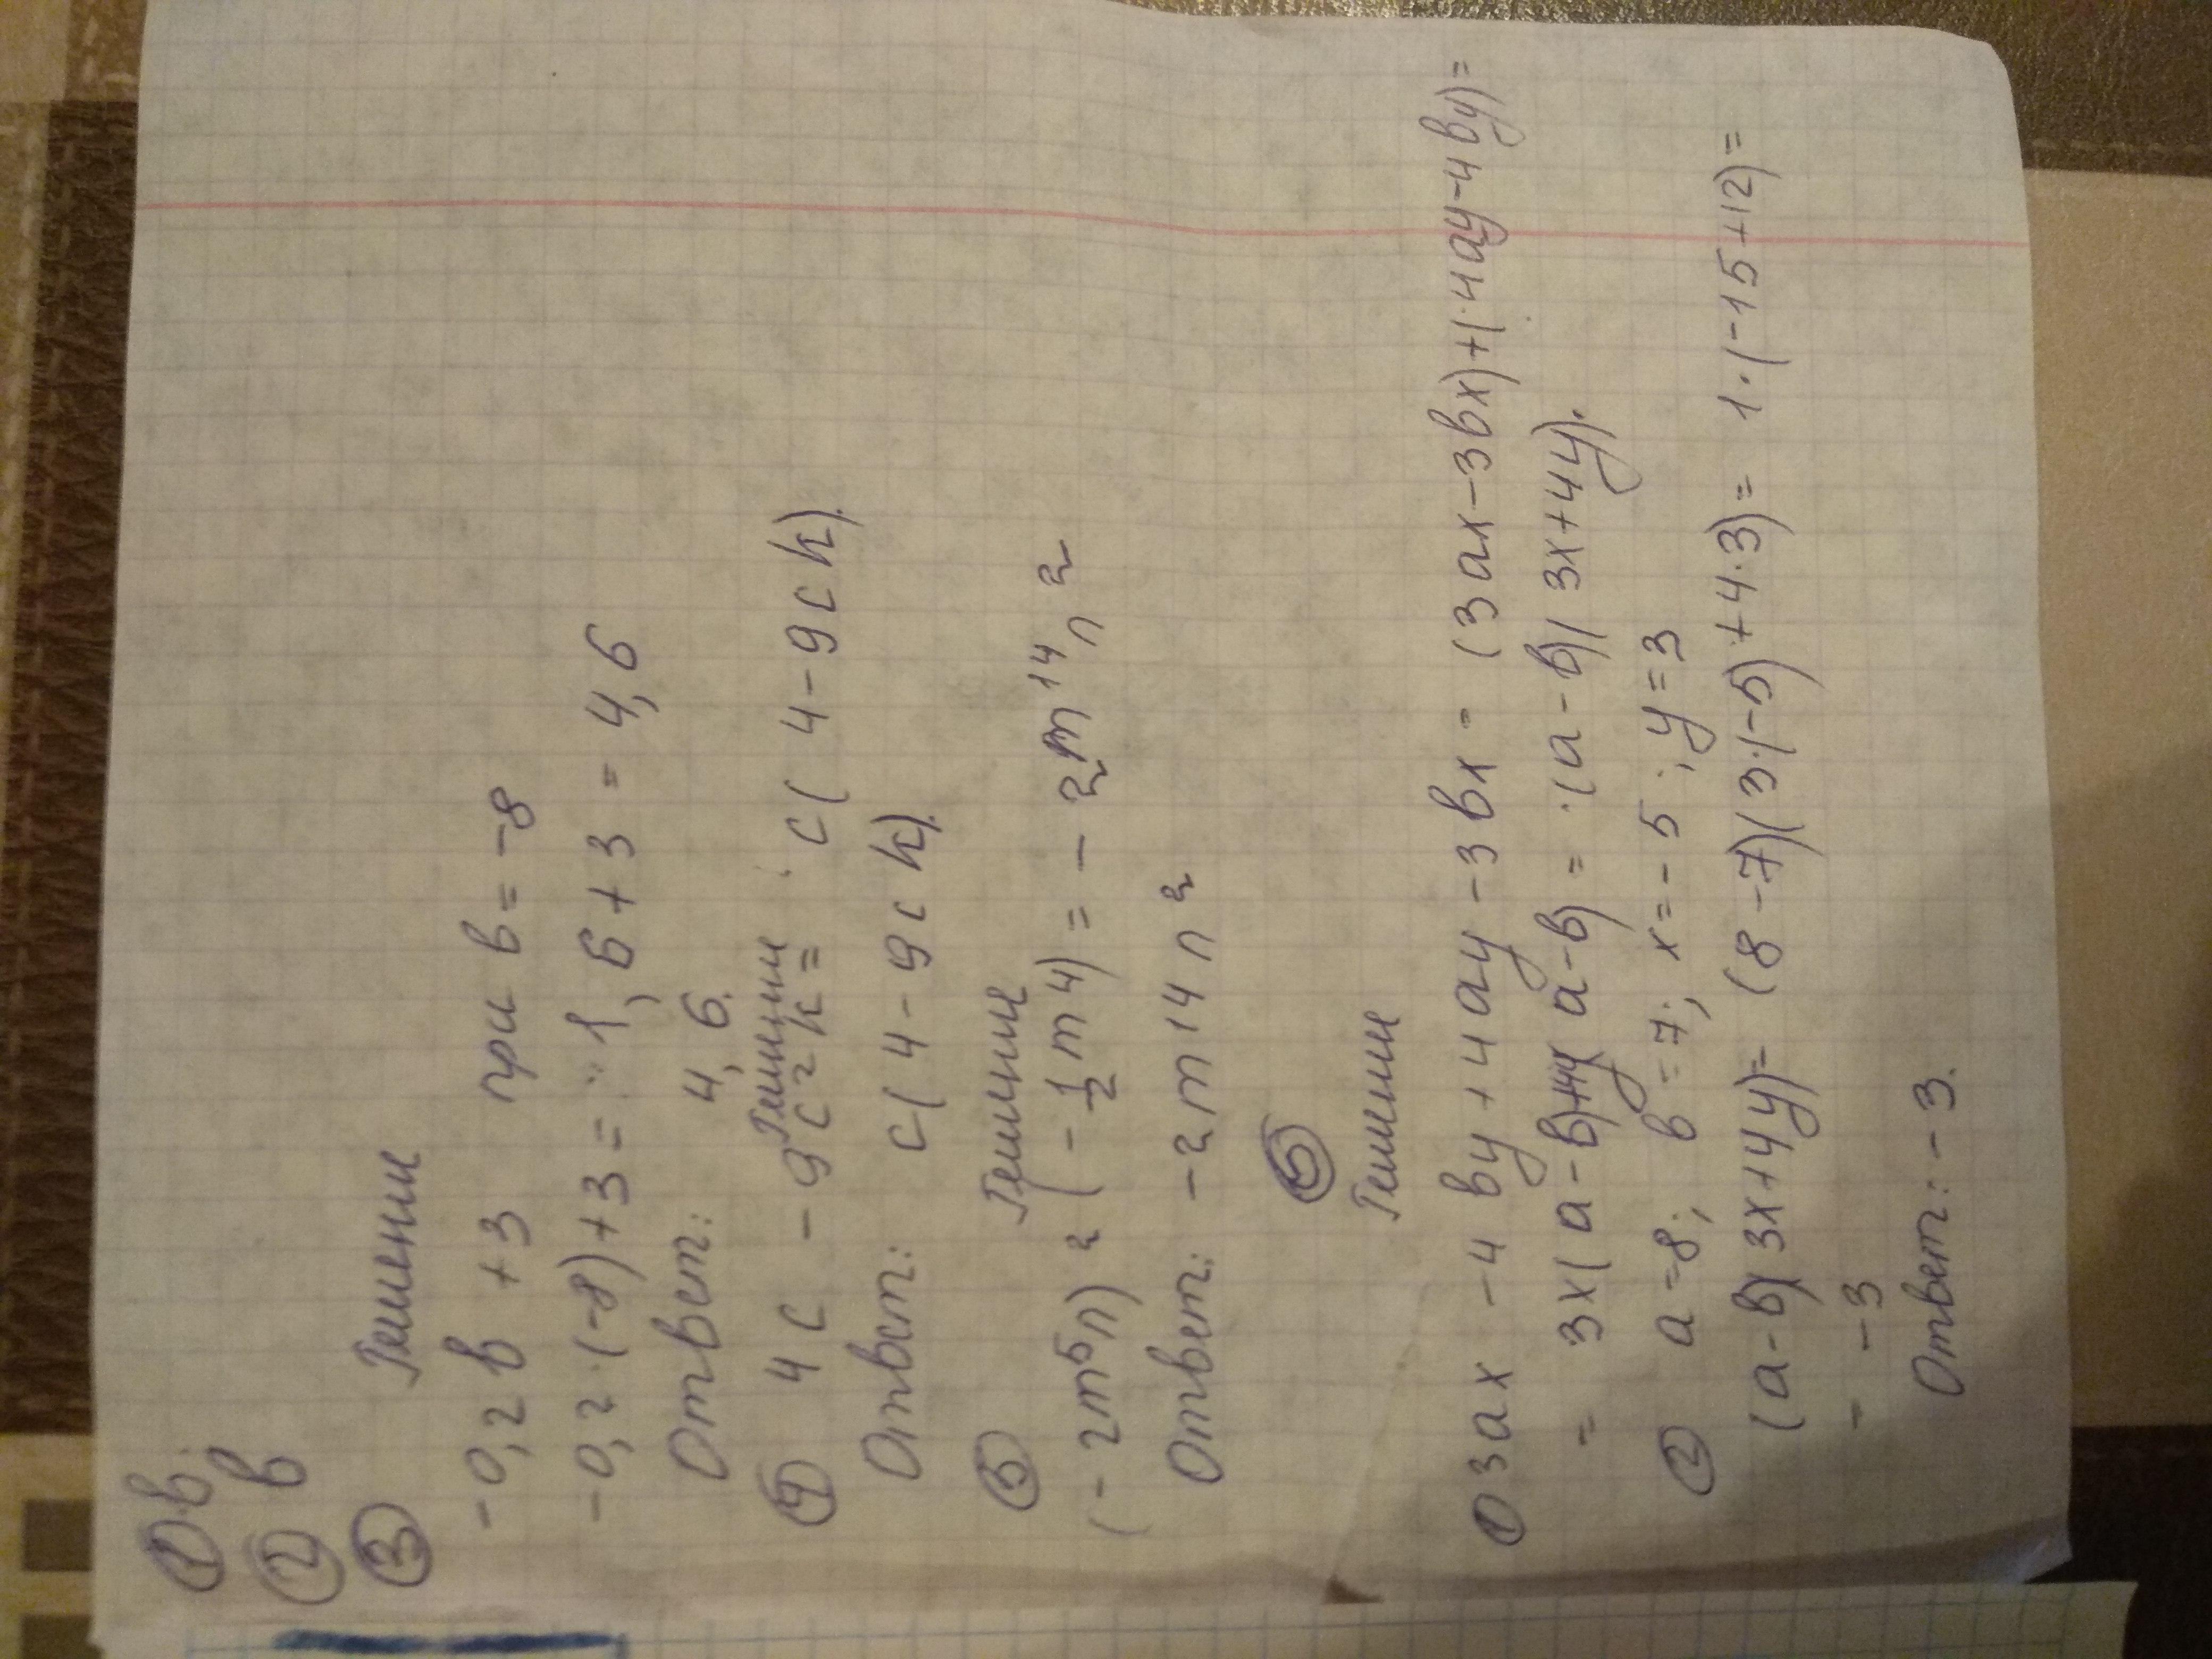 ① в.
② в
③ Решение
-0,2в +3 при в = -8
-0,2·(-8)+3 = 1,6+3 = 4,6
Ответ: 4,6.
④ Решение
4c - 9c²k = c(4-9ck).
Ответ: c(4-9ck).
⑤ Решение
(-2m⁵n)² (-½m4) = -2m¹⁴n²
Ответ: -2m14n²
⑥
Решение
① 3ax -4вy +4ay -3вx = (3ax-3вx)+(4ay-4вy)=
= 3x(a-в)+4y(a-в) = (a-в)(3x+4y).
② a=8; в=7; x=-5; y=3
(a-в)(3x+4y)= (8-7)(3·(-5)+4·3)= 1·(-15+12)=
= -3
Ответ: -3.